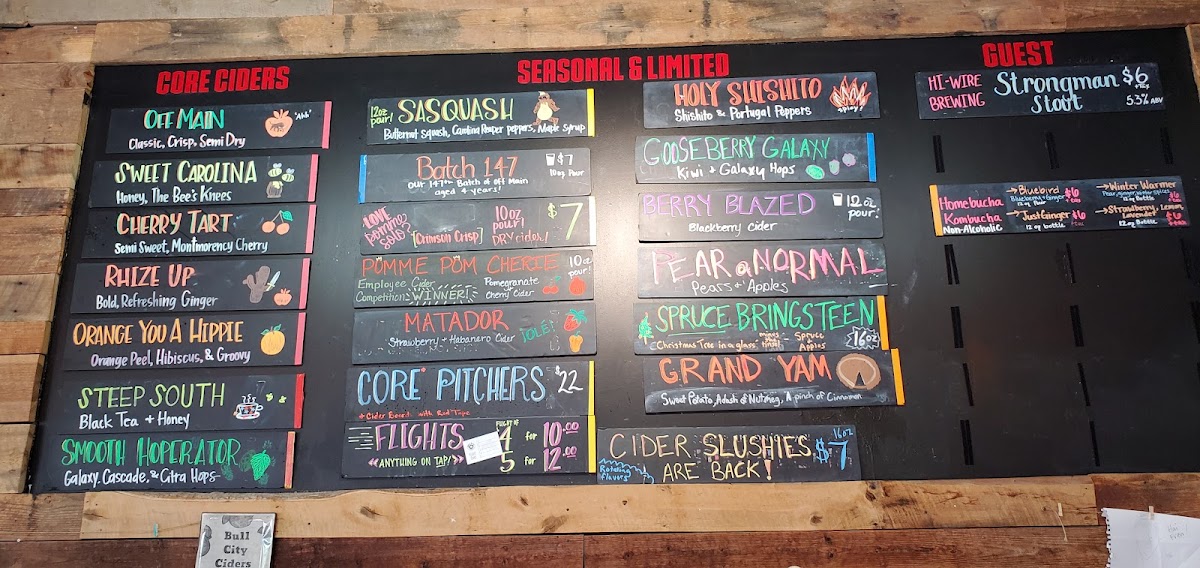 CORE CIDERS
OFF MAIN
"Ahh"
Classic, Crisp, Semi Dry
SWEET CAROLINA
Honey, The Bee's Knees
CHERRY TART
Semi Sweet, Montmorency Cherry
RHIZE UP
Bold, Refreshing Ginger
ORANGE YOU A HIPPIE
Orange Peel, Hibiscus, & Groovy
STEEP SOUTH
Black Tea + Honey
SMOOTH HOPERATOR
Galaxy, Cascade, & Citra Hops
SEASONAL & LIMITED
12oz pour!
SASQUASH
Butternut squash, Carolina Reaper peppers, Maple syrup
Batch 147
$7
10oz Pour
our 147th Batch of Off Main
aged 4 years!
LOVE
[Crimson Crisp]
10oz
pour!
DRY cider!
$7
POMME POM CHERIE
10oz pour!
Employee Cider
Competition WINNER!
Pomegranate
Cherry Cider
MATADOR
Strawberry + Habanero Cider
¡OLÉ!
CORE* PITCHERS $22
* Cider Board with Red Tape
FLIGHTS
<<ANYTHING ON TAP!>>
FLIGHT OF
4 for 10.00
5 for 12.00
HOLY SHISHITO
Shishito & Portugal Peppers
Spicy!
GOOSEBERRY GALAXY
Kiwi + Galaxy Hops
BERRY BLAZED
12oz
pour!
Blackberry cider
PEAR aNORMAL
Pears + Apples
SPRUCE BRINGSTEEN
Christmas Tree in a glass
minus
tinsel
Spruce
+
Apples
16oz
GRAND YAM
Sweet Potato, A dash of Nutmeg, A pinch of Cinnamon
CIDER SLUSHIES
ARE BACK!
16oz
$7
Rotating
flavors!
GUEST
HI-WIRE
BREWING
Strongman
Stout
$6
+tax
5.3% ABV
Homebucha
Kombucha
Non-Alcoholic
→Bluebird $6
Blueberry + Ginger
12 oz Pour
→Just Ginger $6
12 oz bottle
→Winter Warmer
Pear, ginger, winter spices
12 oz Bottle $6
→Strawberry, Lemon,
Lavender
12 oz Bottle $6
Bull
City
Ciders